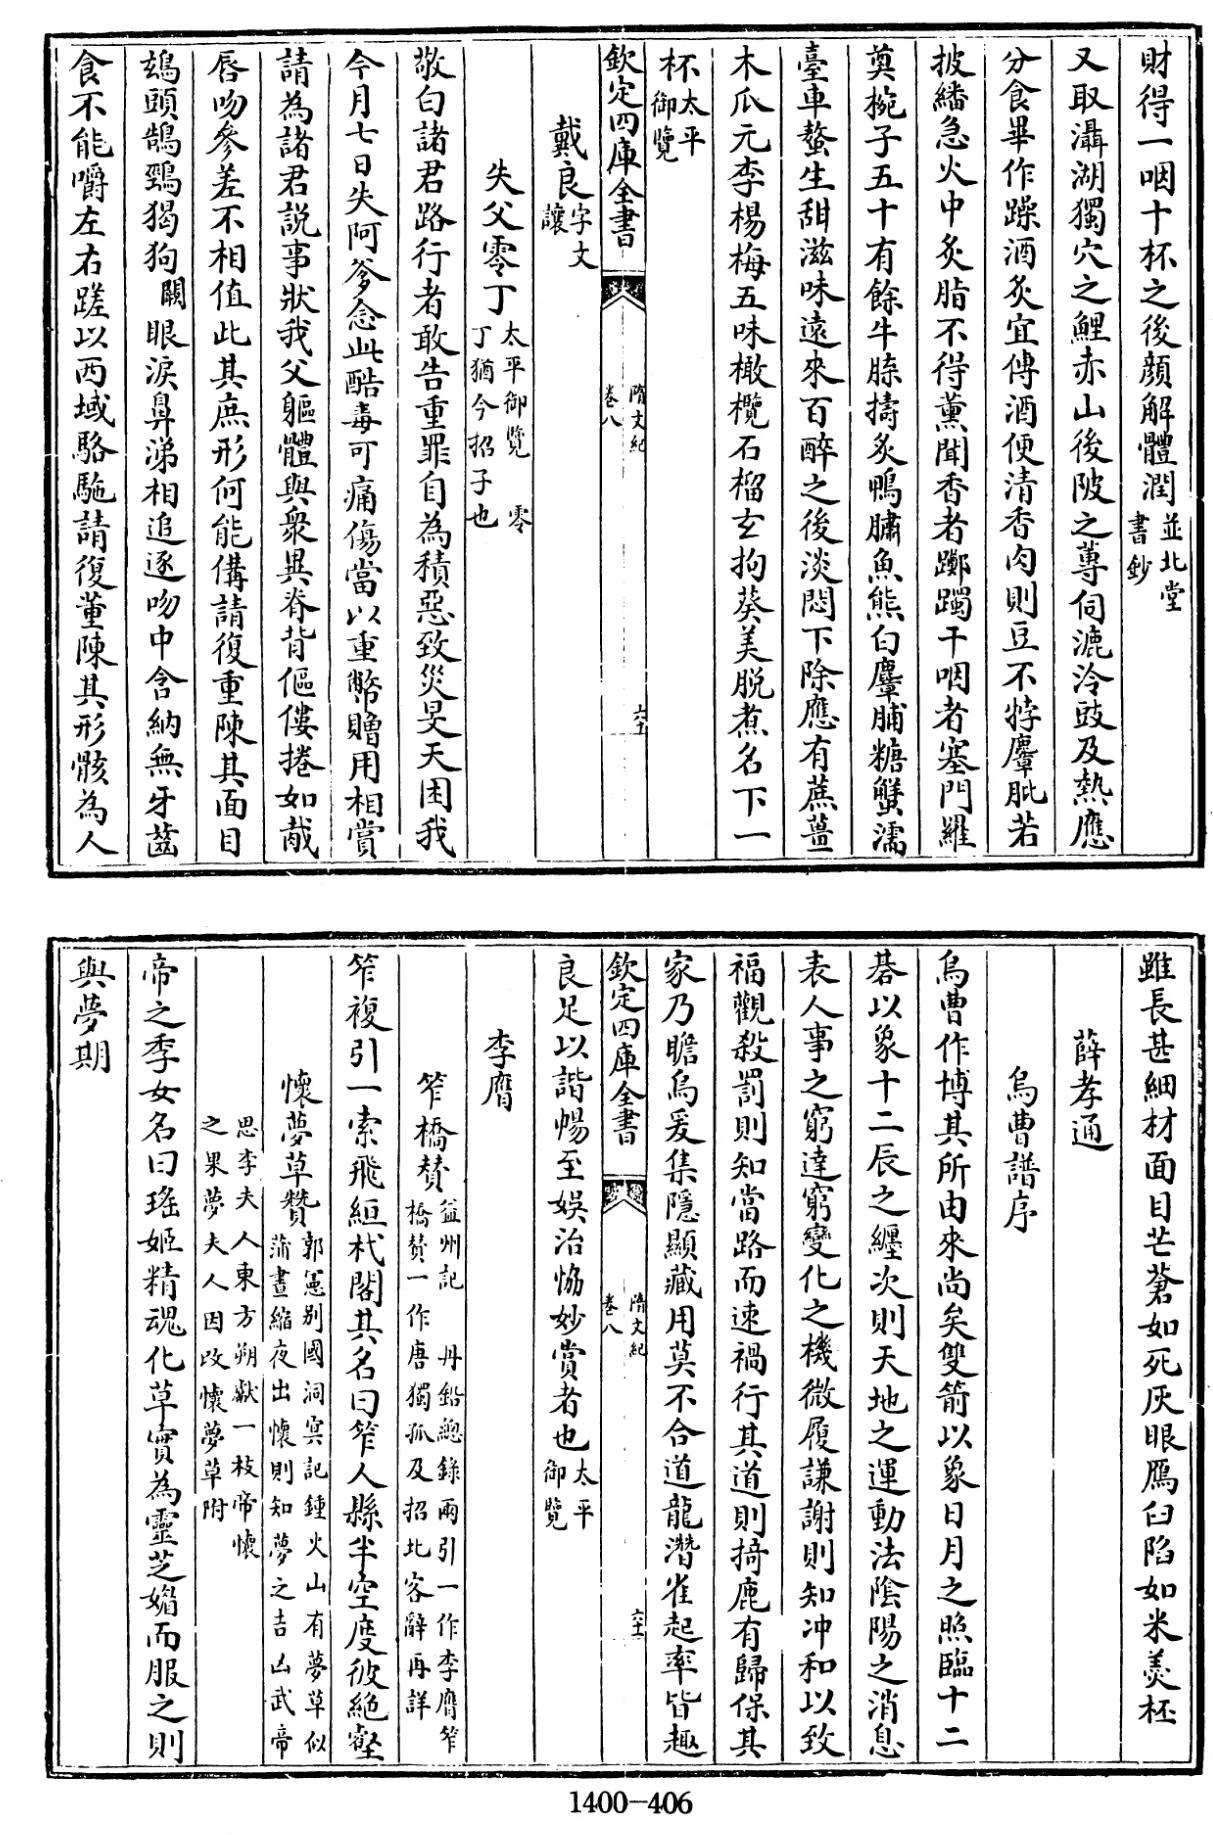 財得一咽十杯之後顔解體潤並北堂書鈔
又取灄湖獨穴之鯉赤山後陂之蓴伺漉泠豉及熱應
分食畢作躁酒炙宜傳酒便清香肉則豆不㹀麞肶若
披繙急火中炙脂不得薰聞香者躑躅干咽者塞門羅
奠椀子五十有餘牛膝擣炙鴨臛魚熊白麞脯糖蟹濡
臺車螯生甜滋味遠來百醉之後淡悶下除應有蔗薑
木瓜元李楊梅五味橄欖石榴玄拘葵羙脱煮名下一
杯太平御覽
欽定四庫全書
隋文紀
卷八
六十
戴良字文讓
失父零丁太平御覽 零丁猶今招子也
敬白諸君路行者敢告重罪自為積惡致災旻天困我
今月七日失阿爹念此酷毒可痛傷當以重幣贈用相賞
請為諸君説事狀我父軀體與衆異脊背傴僂捲如胾
唇吻參差不相值此其庶形何能俻請復重陳其面目
鴟頭鵠頸獦狗闕眼淚鼻涕相追逐吻中含納無牙齒
食不能嚼左右蹉以西域駱駞請復董陳其形骸為人
雖長甚細材面目芒蒼如死灰眼鴈臼陷如米羙柸
薛孝通
烏曹譜序
烏曹作博其所由來尚矣雙箭以象日月之照臨十二
棊以象十二辰之纏次則天地之運動法陰陽之消息
表人事之窮達窮變化之機微履謙謝則知冲和以致
福觀殺罰則知當路而速禍行其道則掎鹿有歸保其
家乃瞻烏爰集隱顯藏用莫不合道龍潛雀起率皆趣
欽定四庫全書
隋文紀
卷八
六十一
良足以諧暢至娱洽協妙賞者也太平御覽
李膺
笮橋賛益州記 丹鉛總錄兩引一作李膺笮橋賛一作唐獨孤及招北客辭再詳
笮複引一索飛絙杙閣其名曰笮人縣半空度彼絶壑
懷夢草贊郭憲别國洞㝠記鍾火山有夢草似蒲晝縮夜出懷則知夢之吉凶武帝
思李夫人東方朔獻一枝帝懷之果夢夫人因改懷夢草附
帝之季女名曰瑤姬精魂化草實為靈芝媚而服之則
與夢期
1400-406